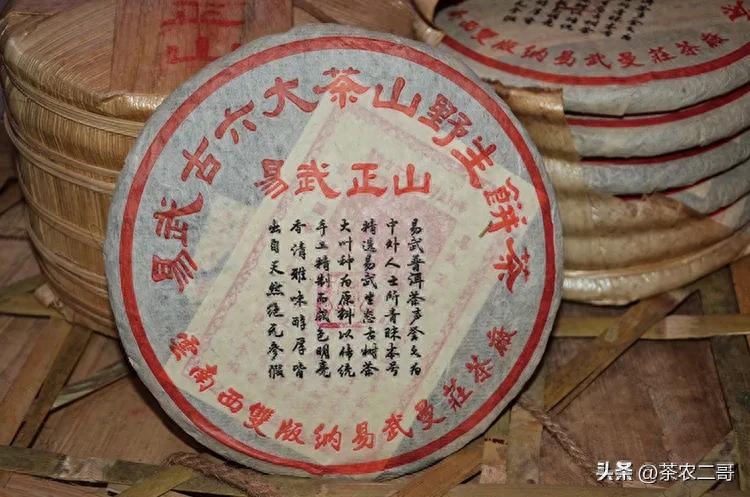 易武古六大茶山野生餅茶
易武正山
易武普洱茶声誉久为
中外人士所青睐本号
精选易武生态古树茶
大叶种为原料以传统
手工精制而成色明亮
香清雅味醇厚皆
出自天然绝无参假
雲南西雙版納易武曼莊茶廠
正山
雲南西雙版納易武曼莊茶廠
头条 @茶农二哥